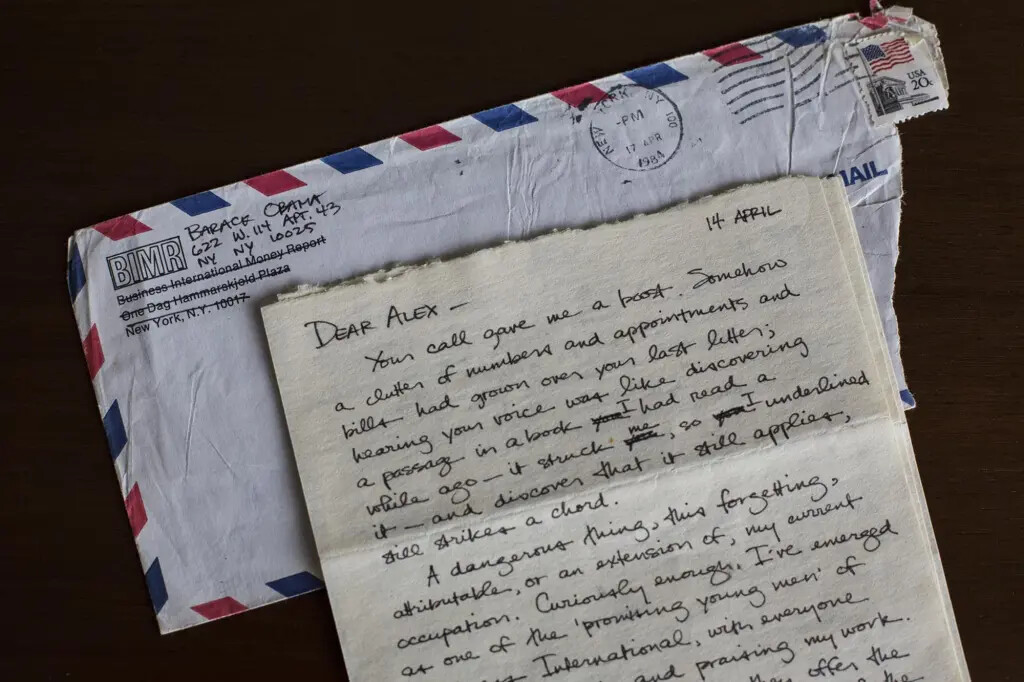 USA
20c
NEW YORK, NY 100
-PM
17 APR
1984
MAIL
BARACK OBAMA
622 W. 114 APT. 43
NY NY 10025
BIMR
Business International Money Report
One Dag Hammarskjold Plaza
New York, N.Y. 10017
14 APRIL
DEAR ALEX —
Your call gave me a boost. Somehow
a clutter of numbers and appointments and
bills had grown over your last letter;
hearing your voice was like discovering
a passage in a book you I had read a
while ago — it struck me, so you I underlined
it — and discover that it still applies,
still strikes a chord.
A dangerous thing, this forgetting,
attributable, or an extension of, my current
occupation. Curiously enough, I've emerged
as one of the 'promising young men' of
International, with everyone
and praising my work.
offer the